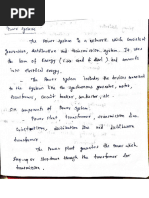 Power System
The Power System is a network which consists of
Generation, distribution and transmission system. It uses
the form of Energy (like coal & diesel) and converts
into electrical energy.
The Power system includes the devices connected
to the system like the synchronous generator, motor,
transformer, circuit breaker, conductor, etc.
Six components of Power system
Power plant, transformer, transmission line
Substations, distribution line and distribution
transformer
The Power plant generates the power which
step up or step down through the transformer for
transmission.